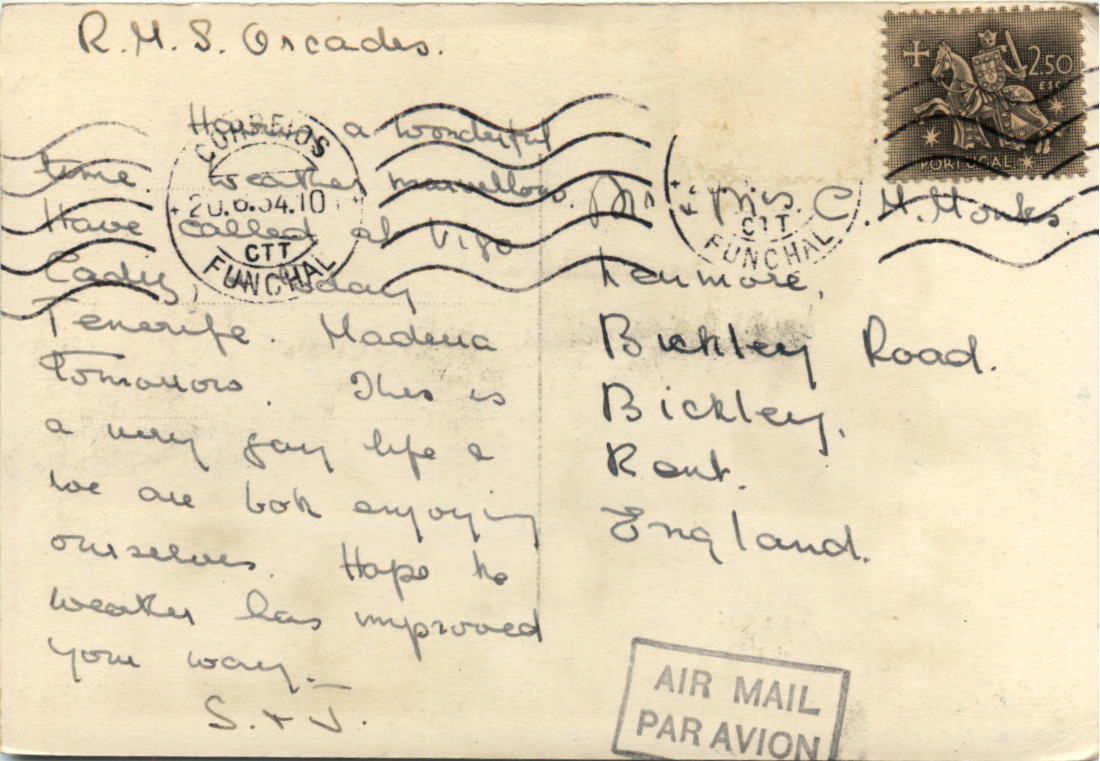 R.M.S. Orcades.
Having a wonderful
time. Weather marvellous.
Have called at Vigo
Cadiz, today
Tenerife. Madeira
Tomorrow. This is
a very gay life &
we are both enjoying
ourselves. Hope the
weather has improved
your way.
S. + J.
2.50
ESC.
PORTUGAL
CORREIOS
20.6.54.10
CTT
FUNCHAL
CTT
FUNCHAL
Mrs. C. M. Monks
Kenmore,
Bickley Road.
Bickley,
Kent.
England.
AIR MAIL
PAR AVION